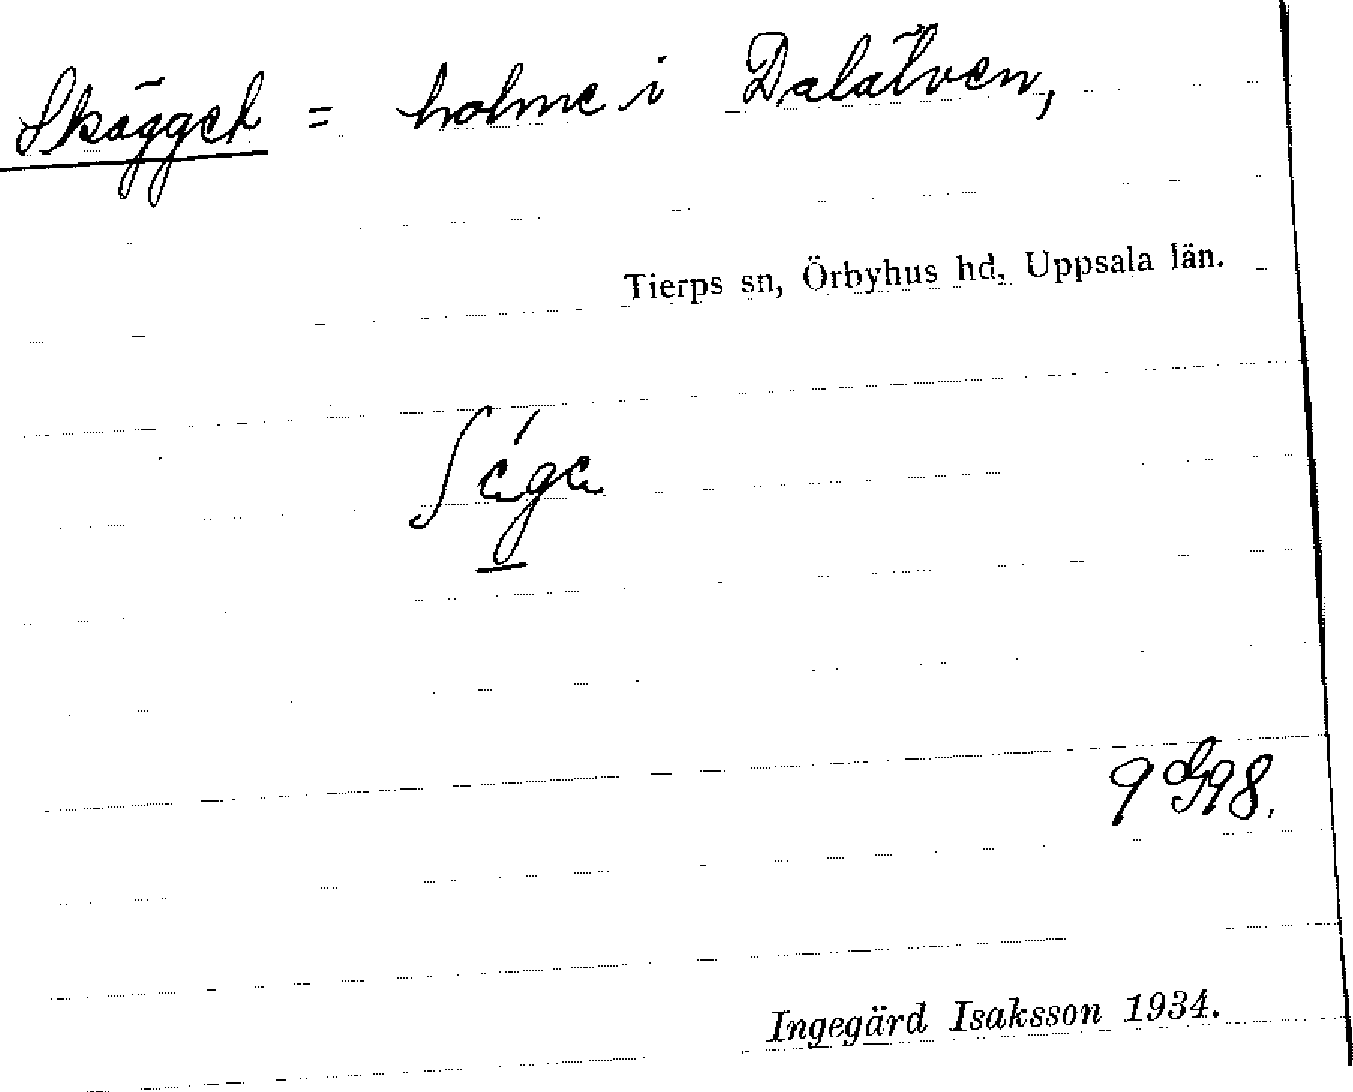 Skägget = holme i Dalälven,
Tierps sn, Örbyhus hd, Uppsala län.
Ingegärd Isaksson 1934.